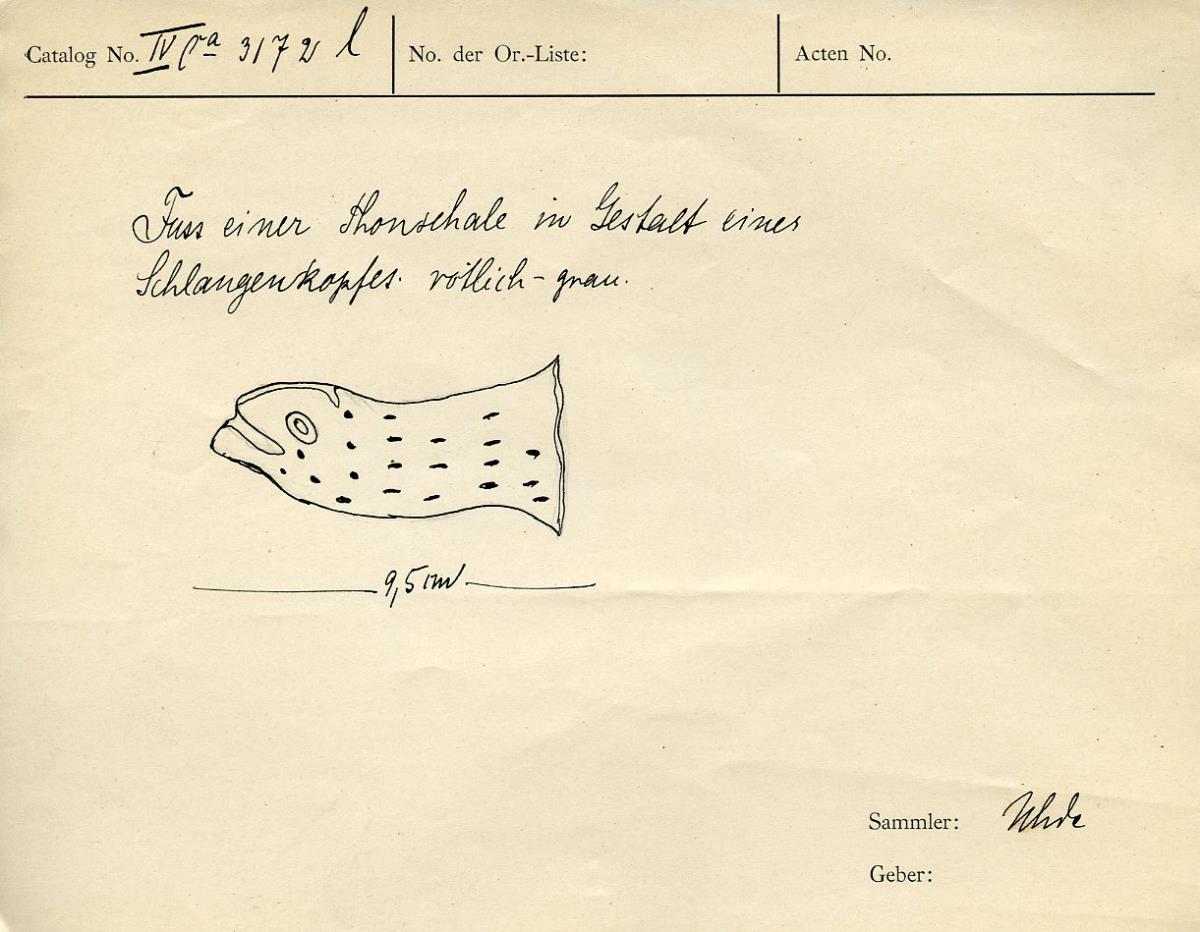 Catalog No. IV Ca 3172 l No. der Or.-Liste: Acten No.
Fuss einer Thonschale in Gestalt eines
Schlangenkopfes. rötlich-grau.
9,5 cm
Sammler: Uhde
Geber: